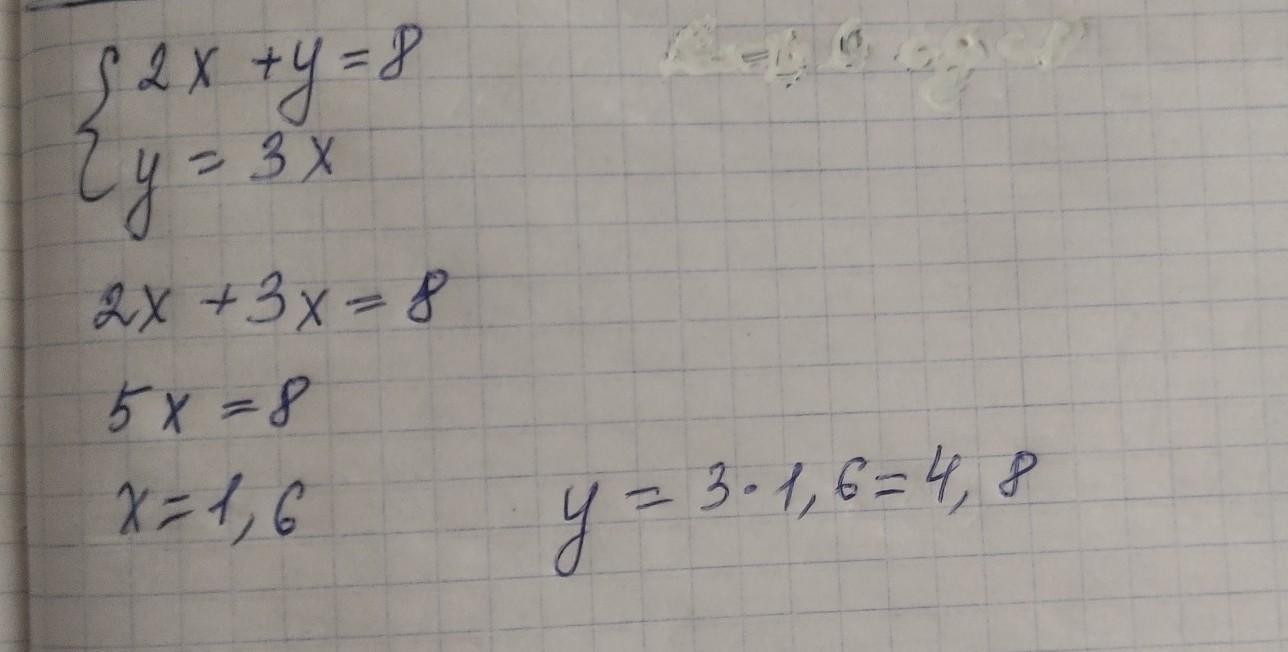 { 2x + y = 8
y = 3x
2x + 3x = 8
5x = 8
x = 1,6
y = 3 · 1,6 = 4,8